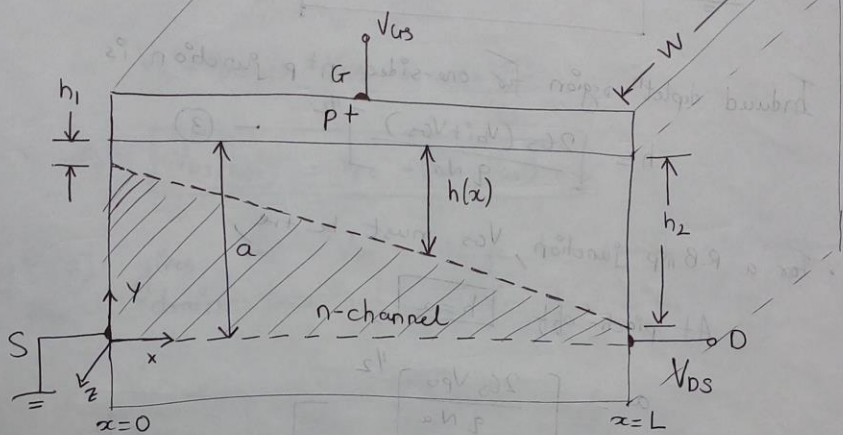 VGS
W
G
h1
P+
h(x)
h2
a
Y
n-channel
S
x
D
Z
VDS
x=0
x=L